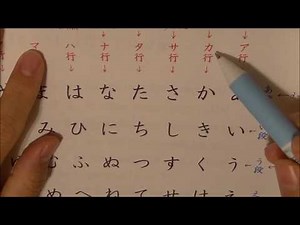 い段
う段
ア行
いう
カ行
かきくけ
サ行
さしすせ
タ行
たちつて
ナ行
なにぬね
ハ行
はひふへ
マ
まみむめ